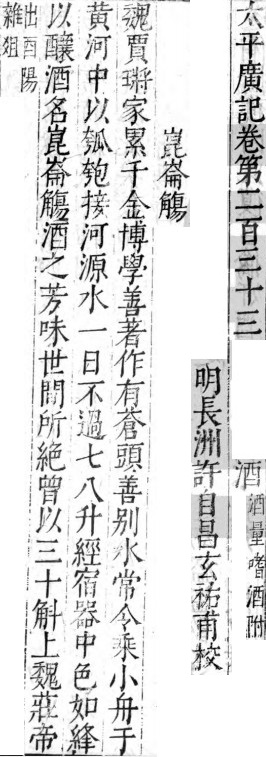 太平廣記卷第二百三十三
酒 酒量 嗜酒附
明長洲許自昌玄祐甫校
崑崙觴
魏賈㻉家累千金博學善著作有蒼頭善别水常令乘小舟于
黄河中以瓠匏接河源水一日不過七八升經宿器中色如絳
以釀酒名崑崙觴酒之芳味世間所絶曾以三十斛上魏莊帝
出酉陽
雜俎